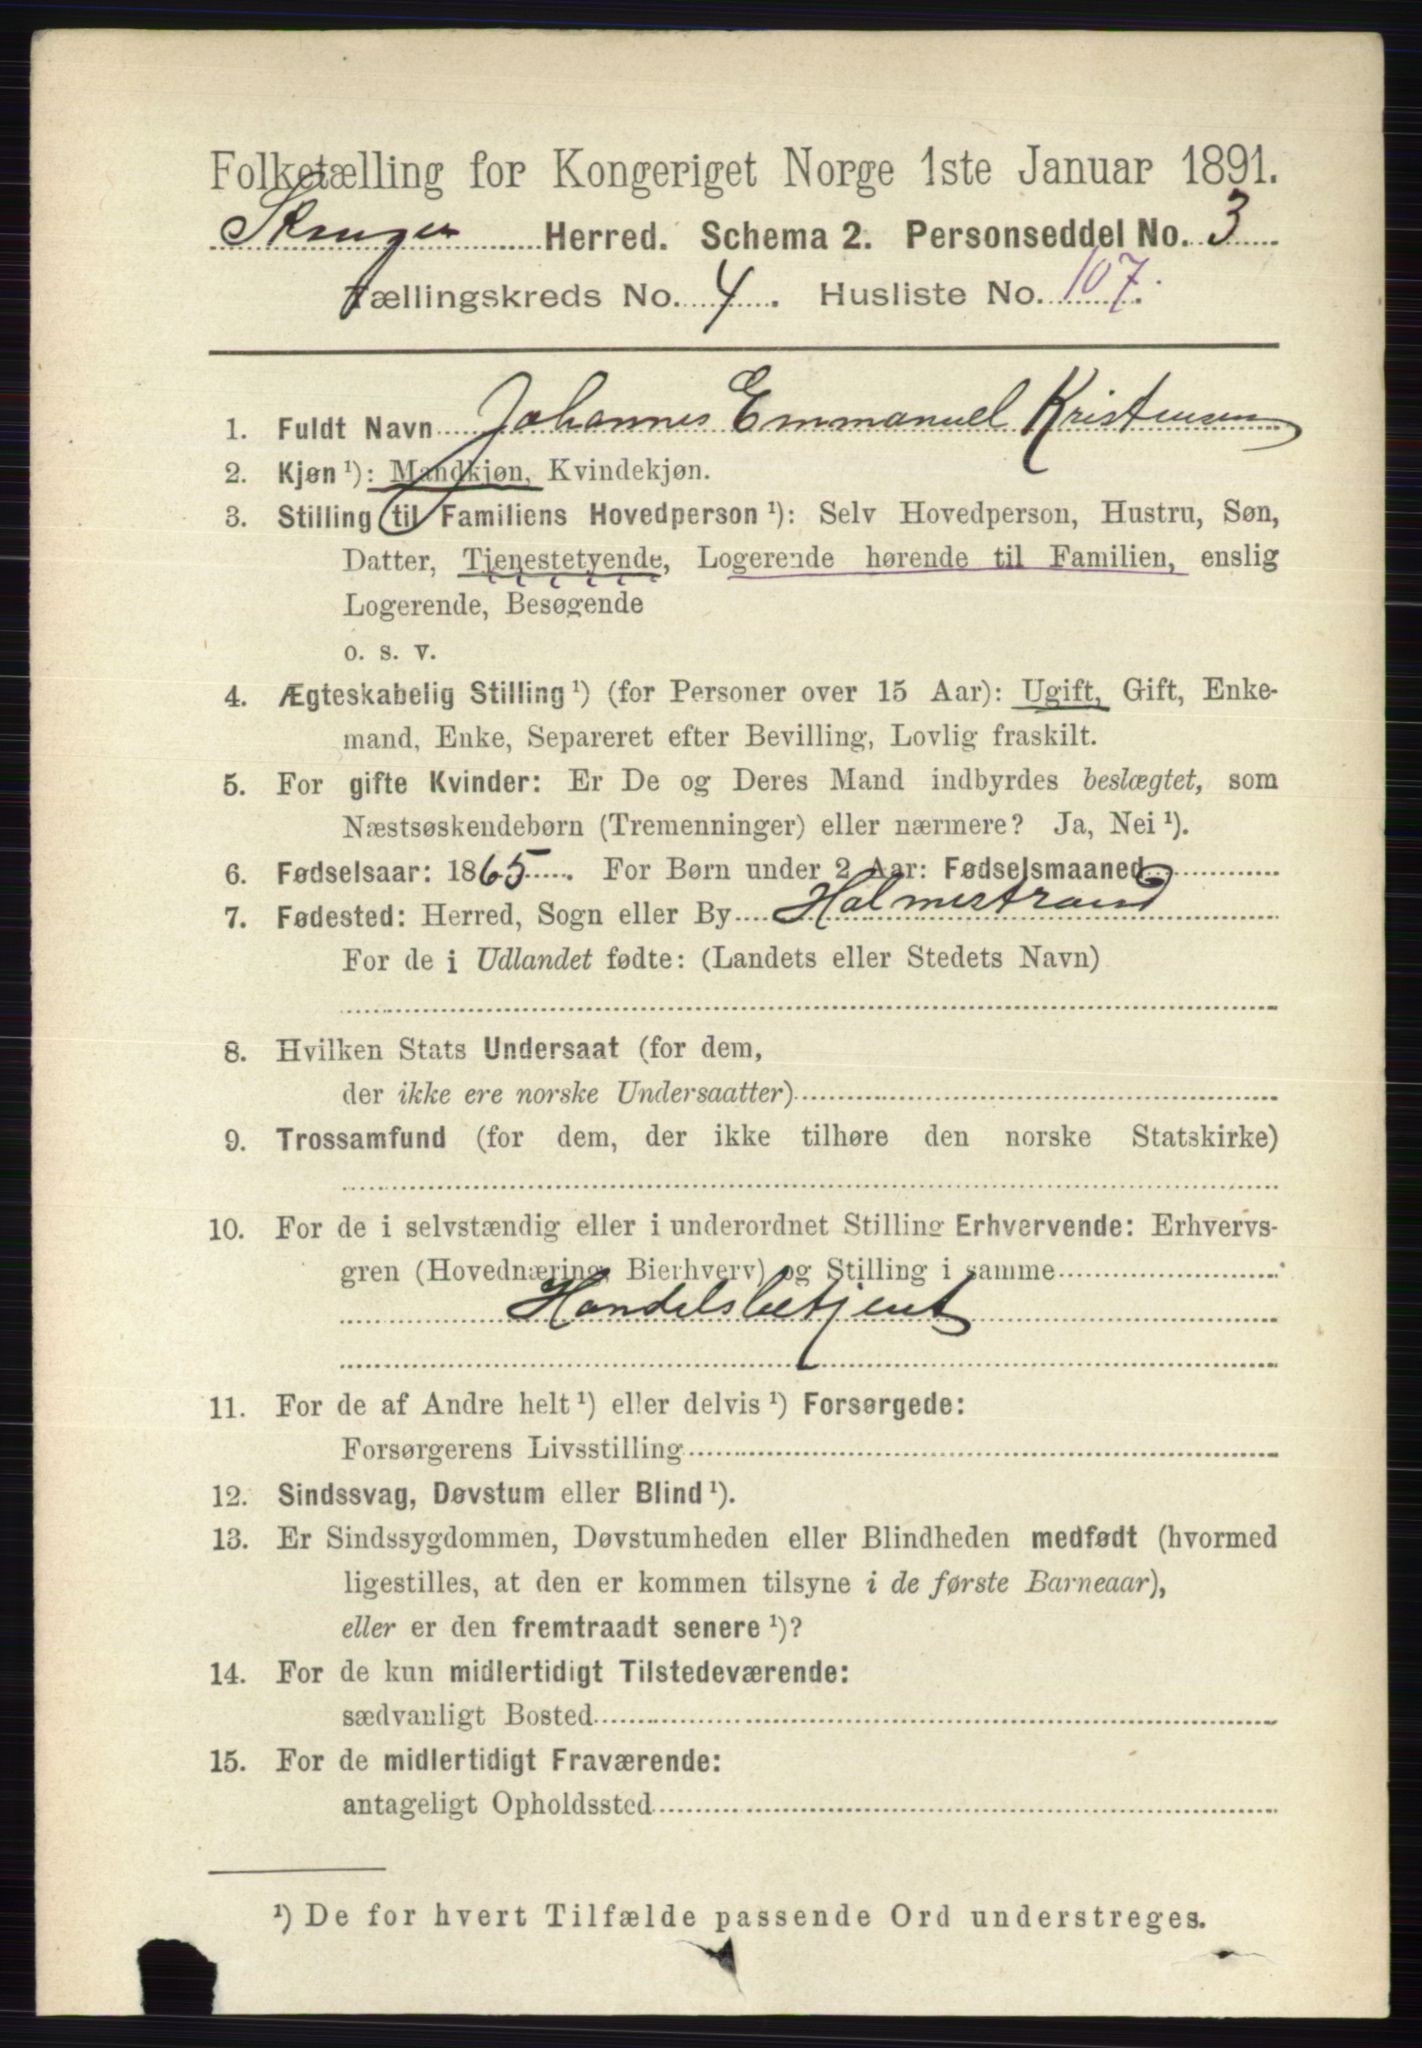 Folketælling for Kongeriget Norge 1ste Januar 1891.
Skouger Herred. Schema 2. Personseddel No. 3
Tællingskreds No. 4. Husliste No. 107.
1. Fuldt Navn Johannes Emmanuel Kristensen
2. Kjøn ¹): Mandkjøn, Kvindekjøn.
3. Stilling til Familiens Hovedperson ¹): Selv Hovedperson, Hustru, Søn,
Datter, Tjenestetyende, Logerende hørende til Familien, enslig
Logerende, Besøgende
o. s. v.
4. Ægteskabelig Stilling ¹) (for Personer over 15 Aar): Ugift, Gift, Enke-
mand, Enke, Separeret efter Bevilling, Lovlig fraskilt.
5. For gifte Kvinder: Er De og Deres Mand indbyrdes beslægtet, som
Næstsøskendebørn (Tremenninger) eller nærmere? Ja, Nei ¹).
6. Fødselsaar: 1865. For Børn under 2 Aar: Fødselsmaaned
7. Fødested: Herred, Sogn eller By Holmestrand
For de i Udlandet fødte: (Landets eller Stedets Navn)
8. Hvilken Stats Undersaat (for dem,
der ikke ere norske Undersaatter)
9. Trossamfund (for dem, der ikke tilhøre den norske Statskirke)
10. For de i selvstændig eller i underordnet Stilling Erhvervende: Erhvervs-
gren (Hovednæring, Bierhverv) og Stilling i samme
Handelsbetjent
11. For de af Andre helt ¹) eller delvis ¹) Forsørgede:
Forsørgerens Livsstilling
12. Sindssvag, Døvstum eller Blind ¹).
13. Er Sindssygdommen, Døvstumheden eller Blindheden medfødt (hvormed
ligestilles, at den er kommen tilsyne i de første Barneaar),
eller er den fremtraadt senere ¹)?
14. For de kun midlertidigt Tilstedeværende:
sædvanligt Bosted
15. For de midlertidigt Fraværende:
antageligt Opholdssted
¹) De for hvert Tilfælde passende Ord understreges.